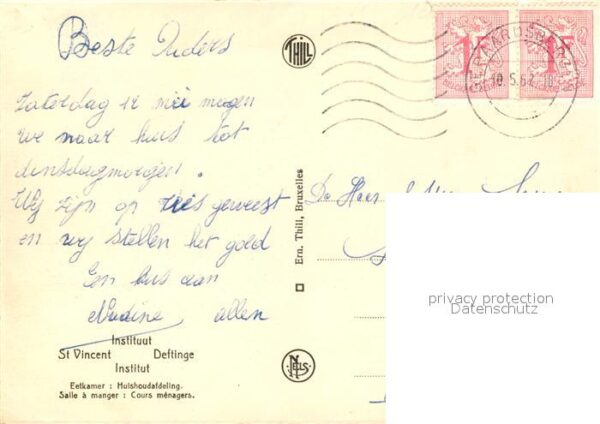 Beste Ouders
Zaterdag 12 mei mogen
we naar huis tot
dinsdagmorgen.
Wij zijn op reis geweest
en wij stellen het goed
Een kus aan
Nadine allen
Instituut
St Vincent Deftinge
Institut
Eetkamer : Huishoudafdeling.
Salle à manger : Cours ménagers.
THILL
Ern. Thill, Bruxelles
NELS
1F 1F
10.5.62
De Heer
privacy protection
Datenschutz